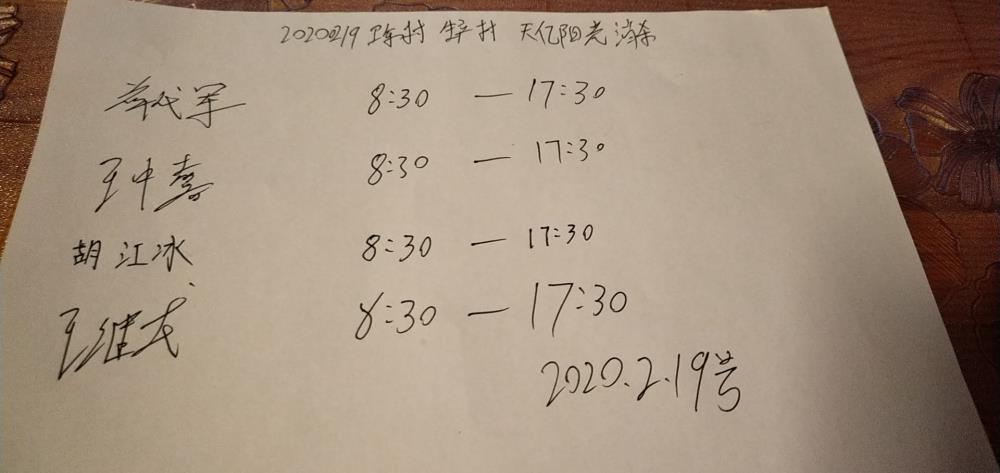 20200219 陈村 生产村 天亿阳光 消杀
军 8:30 — 17:30
王中喜 8:30 — 17:30
胡江冰 8:30 — 17:30
王继成 8:30 — 17:30
2020.2.19号